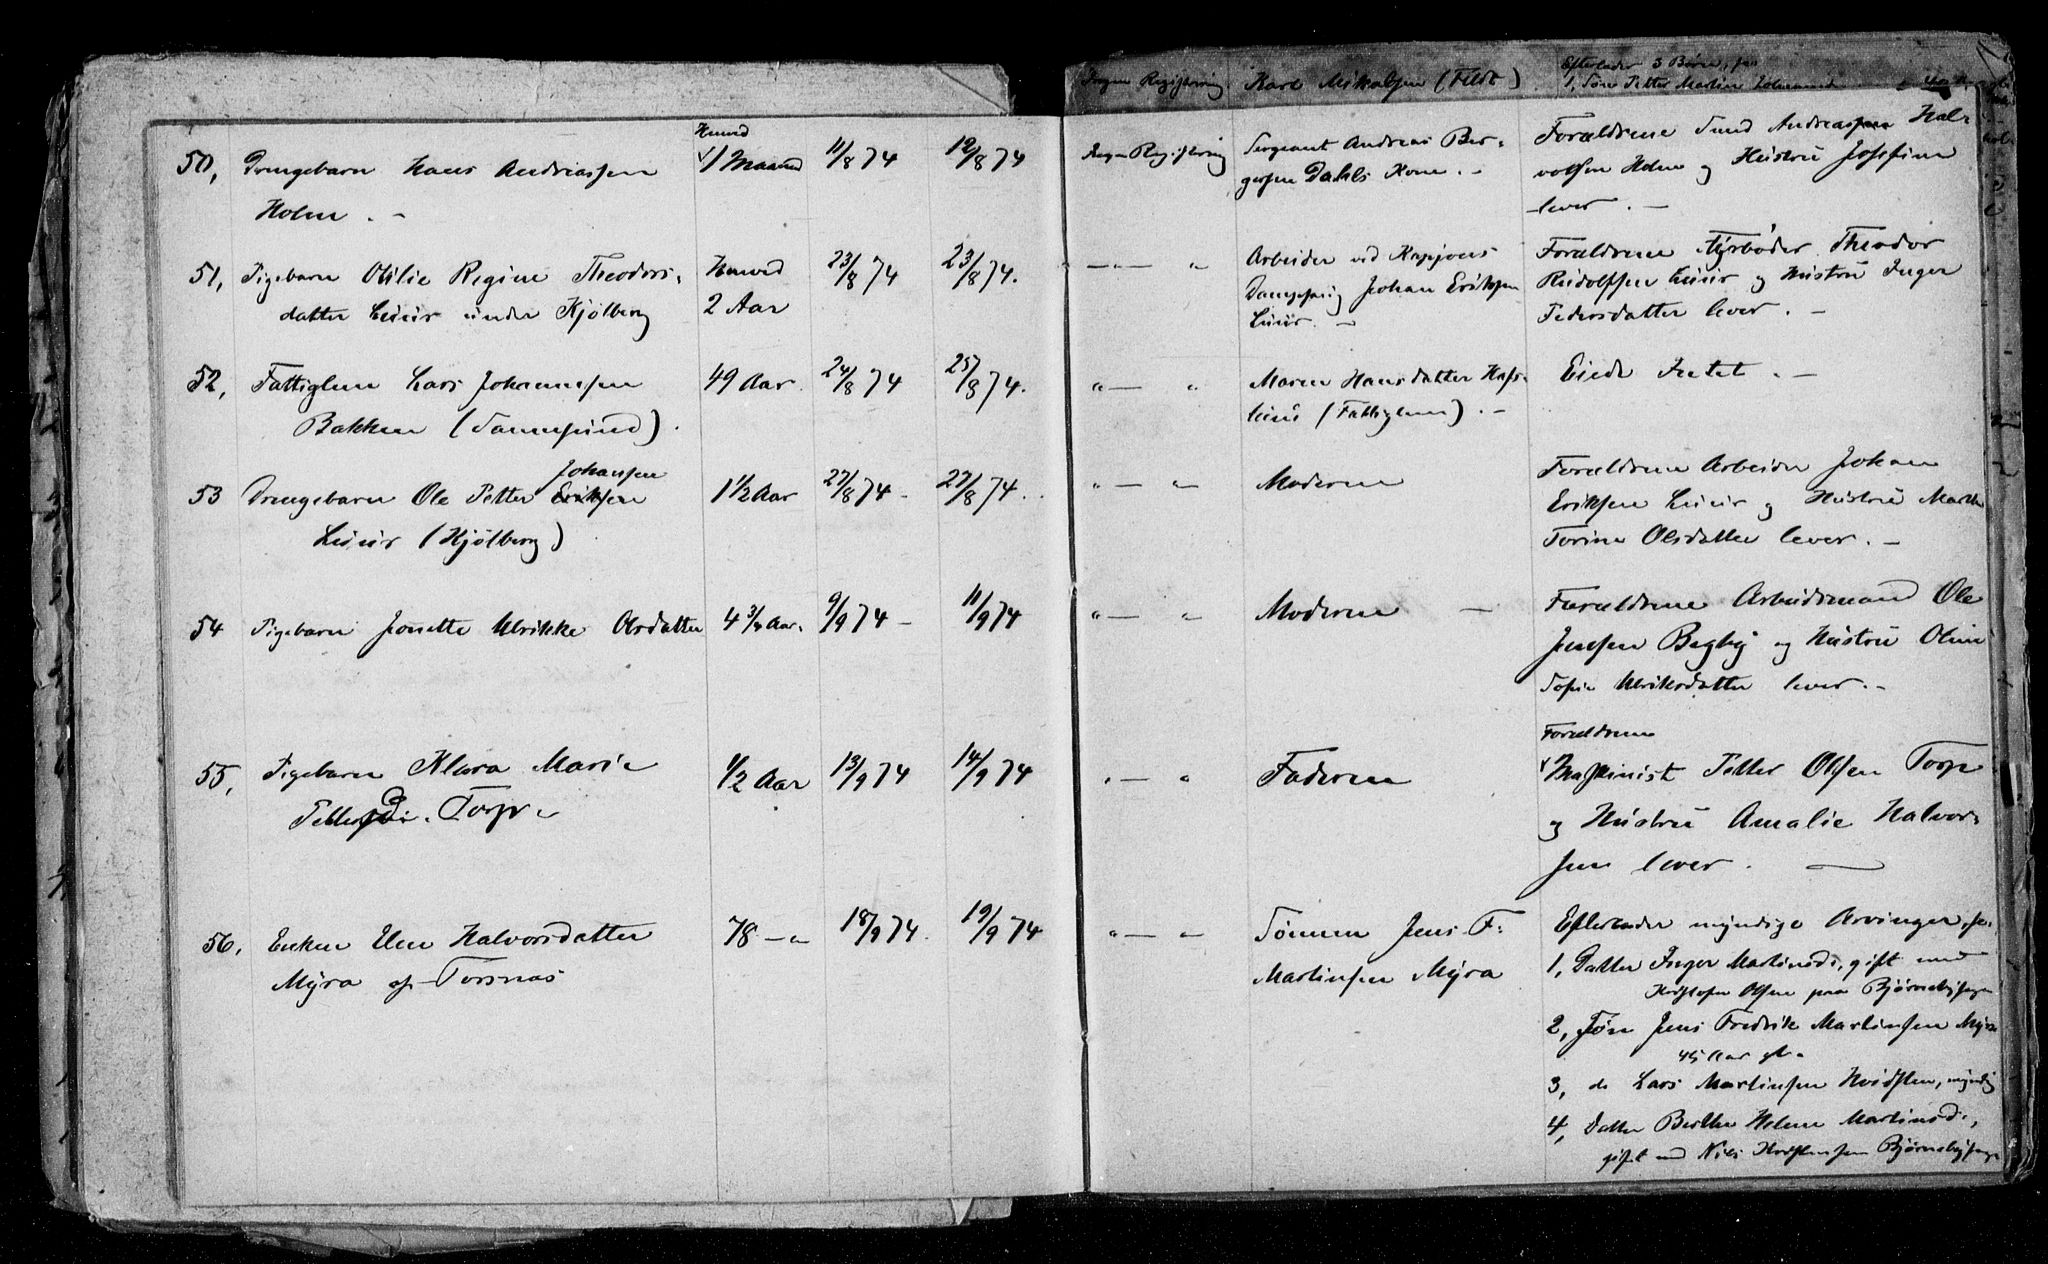 Ingen Registring. Karl Mikalsen (Feldt) Efterlader 3 Børn, sm
1, Søn Petter Martin
50, Drengebarn Hans Andreassen
Holm. -
henved
1 Maaned
11/8 74
12/8 74
Ingen Registring
Sergeant Andreas Ber-
gersen Dahls Kone. -
Forældrene Smed Andreassen Hal-
volsen Holm og Hustru Josefine
lever. -
51, Pigebarn Otilie Regine Theodors-
datter Luur under Kjølberg
Henved
2 Aar
23/8 74
23/8 74.
" — "
Arbeider ved
Dampsaug Johan Eriksen
Luur. -
Forældrene Fyrbøder Theodor
Rudolfsen Luur og Hustru Inger
Pedersdatter lever. -
52, Fattiglem Lars Johannesen
Bakken (Tannesund).
49 Aar.
24/8 74
25/8 74.
" — "
Maren Hansdatter Haf-
lund (Fattiglem). -
Eiede Intet. -
53 Drengebarn Ole Petter Johansen Eriksen
Luur (Kjølberg)
1 1/2 Aar
27/8 74 -
27/8 74.
" — "
Moderen
Forældrene Arbeider Johan
Eriksen Luur og Hustru Marthe
Torine Olsdatter lever. -
54 Pigebarn Jonette Ulrikke Olsdatter
4 3/4 Aar.
9/9 74 -
11/9 74
" — "
Moderen -
Forældrene Arbeidsmand Ole
Jensen Begby og Hustru Oline
Sofie Ulriksdatter lever. -
55, Pigebarn Klara Marie
Petters D. Torp
1/2 Aar
13/9 74
14/9 74
" — "
Faderen
Forældrene
Maskinist Petter Olsen Torp
og Hustru Amalie Halvor-
sen lever. —
56, Enken Elen Halvorsdatter
Myra af Torsnæs
78 — "
18/9 74.
19/9 74
" — "
Sønnen Jens F:
Martinsen Myra
Efterlader myndige Arvinger, sm
1, Datter Inger Martinsd:, gift med
Kristofer Olsen paa Bjørnebysaugen
2, Søn Jens Fredrik Martinsen Myra
45 Aar gl.
3, do Lars Martinsen Hvidsten, myndig
4, Datter Berthe Helene Martinsd:,
gift med Nils Kristensen Bjørnebysaugen